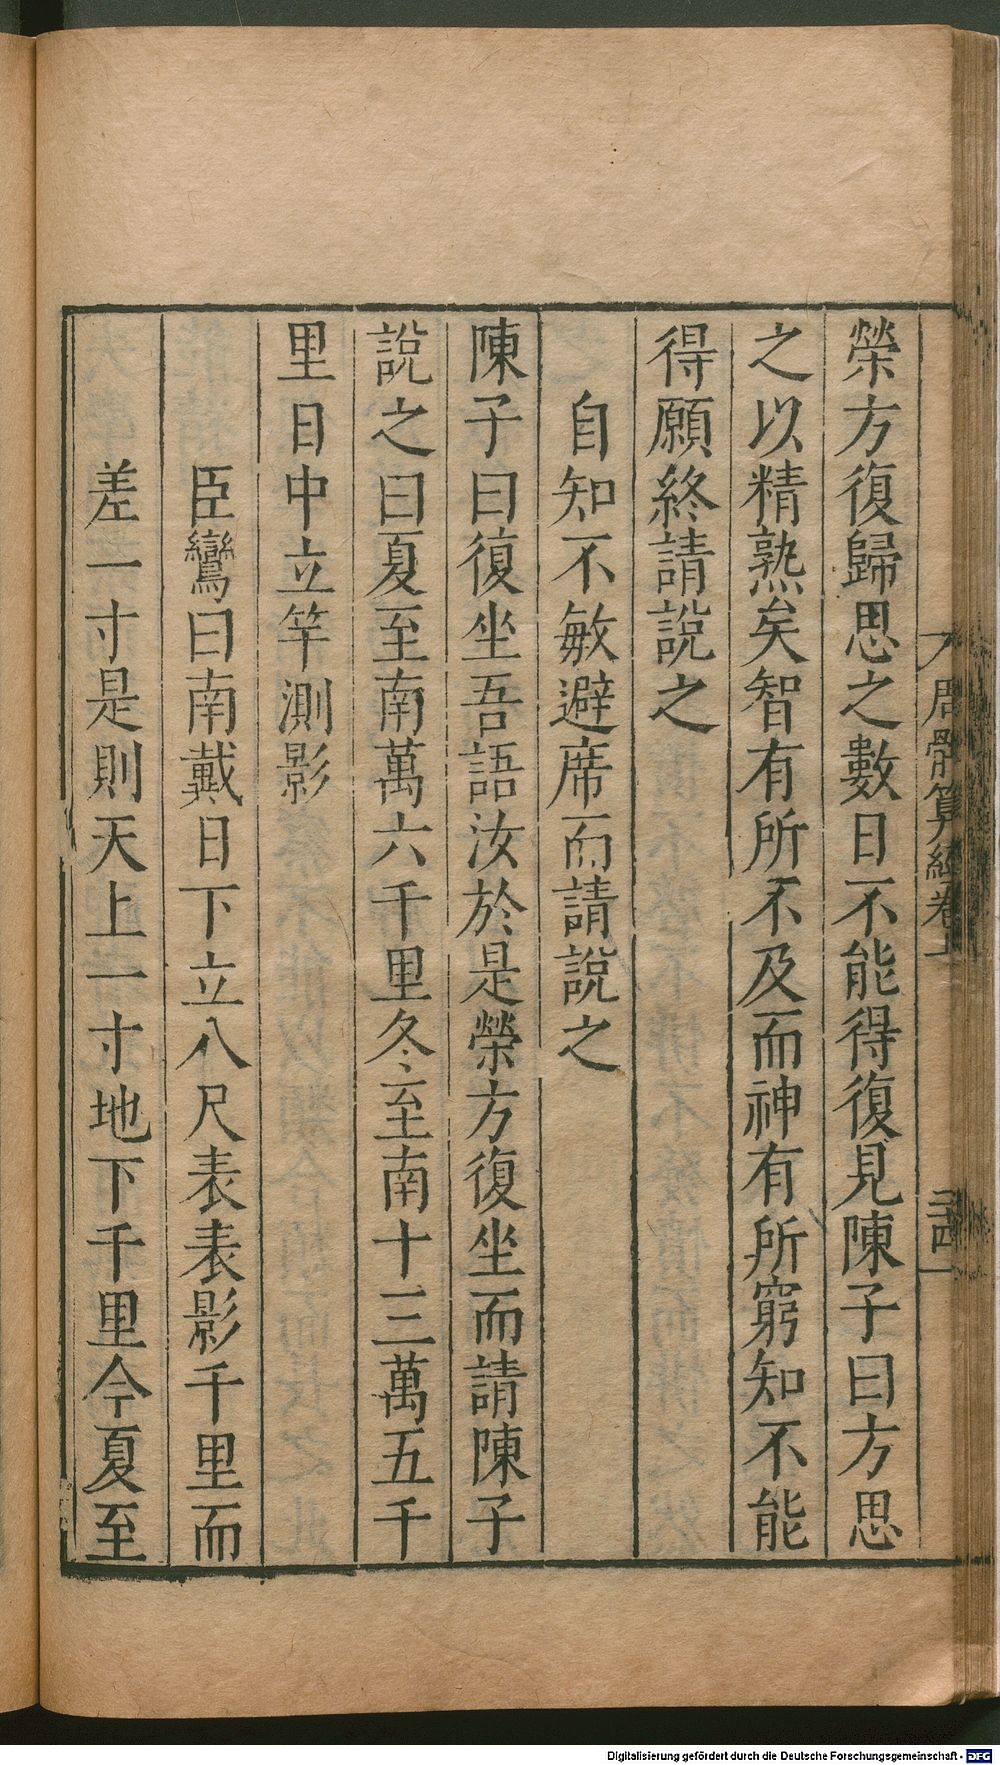 周髀算經卷上
二十四
榮方復歸思之數日不能得復見陳子曰方思
之以精熟矣智有所不及而神有所窮知不能
得願終請說之
自知不敏避席而請說之
陳子曰復坐吾語汝於是榮方復坐而請陳子
說之曰夏至南萬六千里冬至南十三萬五千
里日中立竿測影
臣鸞曰南戴日下立八尺表表影千里而
差一寸是則天上一寸地下千里今夏至
Digitalisierung gefördert durch die Deutsche Forschungsgemeinschaft - DFG